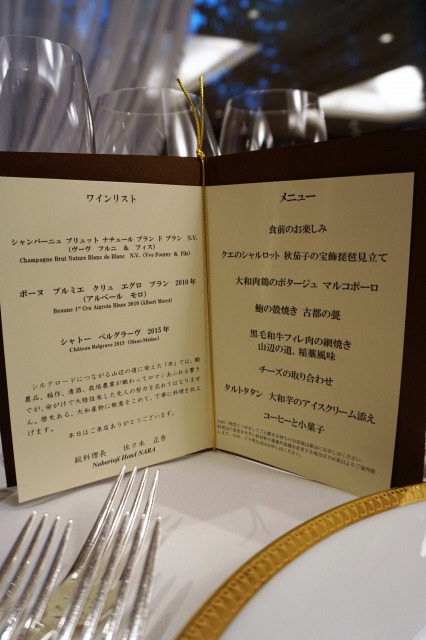 ワインリスト
シャンパーニュ ブリュット ナチュール ブラン ド ブラン N.V.
(ヴーヴ フルニ & フィス)
Champagne Brut Nature Blanc de Blanc N.V. (Vve Fourny & Fils)
ボーヌ プルミエ クリュ エグロ ブラン 2010年
(アルベール モロ)
Beaune 1er Cru Aigrots Blanc 2010 (Albert Morot)
シャトー ベルグラーヴ 2015年
Château Belgrave 2015 (Haut-Médoc)
シルクロードにつながる山辺の道に栄えた「市」では、酪
農品、稲作、清酒、栽培農業が賑わってロマンあふれる響き
ですが、命がけで大陸往来した先人の努力を忘れてはなりませ
ん。歴史ある、大和産物に敬意をこめて、丁寧に料理を仕上
げます。
本日はご来店ありがとうございます。
総料理長 佐々木 正号
Noborioji Hotel NARA
メニュー
食前のお楽しみ
クエのシャルロット 秋茄子の宝飾琵琶見立て
大和肉鶏のポタージュ マルコポーロ
鮑の殻焼き 古都の甍
黒毛和牛フィレ肉の網焼き
山辺の道、稲藁風味
チーズの取り合わせ
タルトタタン 大和芋のアイスクリーム添え
コーヒーと小菓子